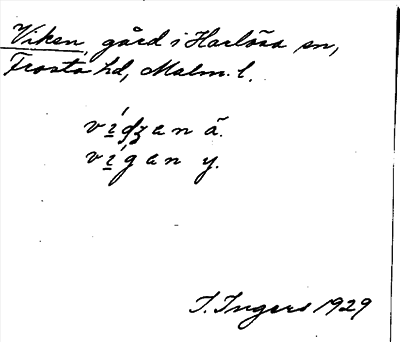 Viken, gård i Harlösa sn,
Frosta hd, Malm. l.
vígzan ä.
vígan y.
I. Ingers 1929